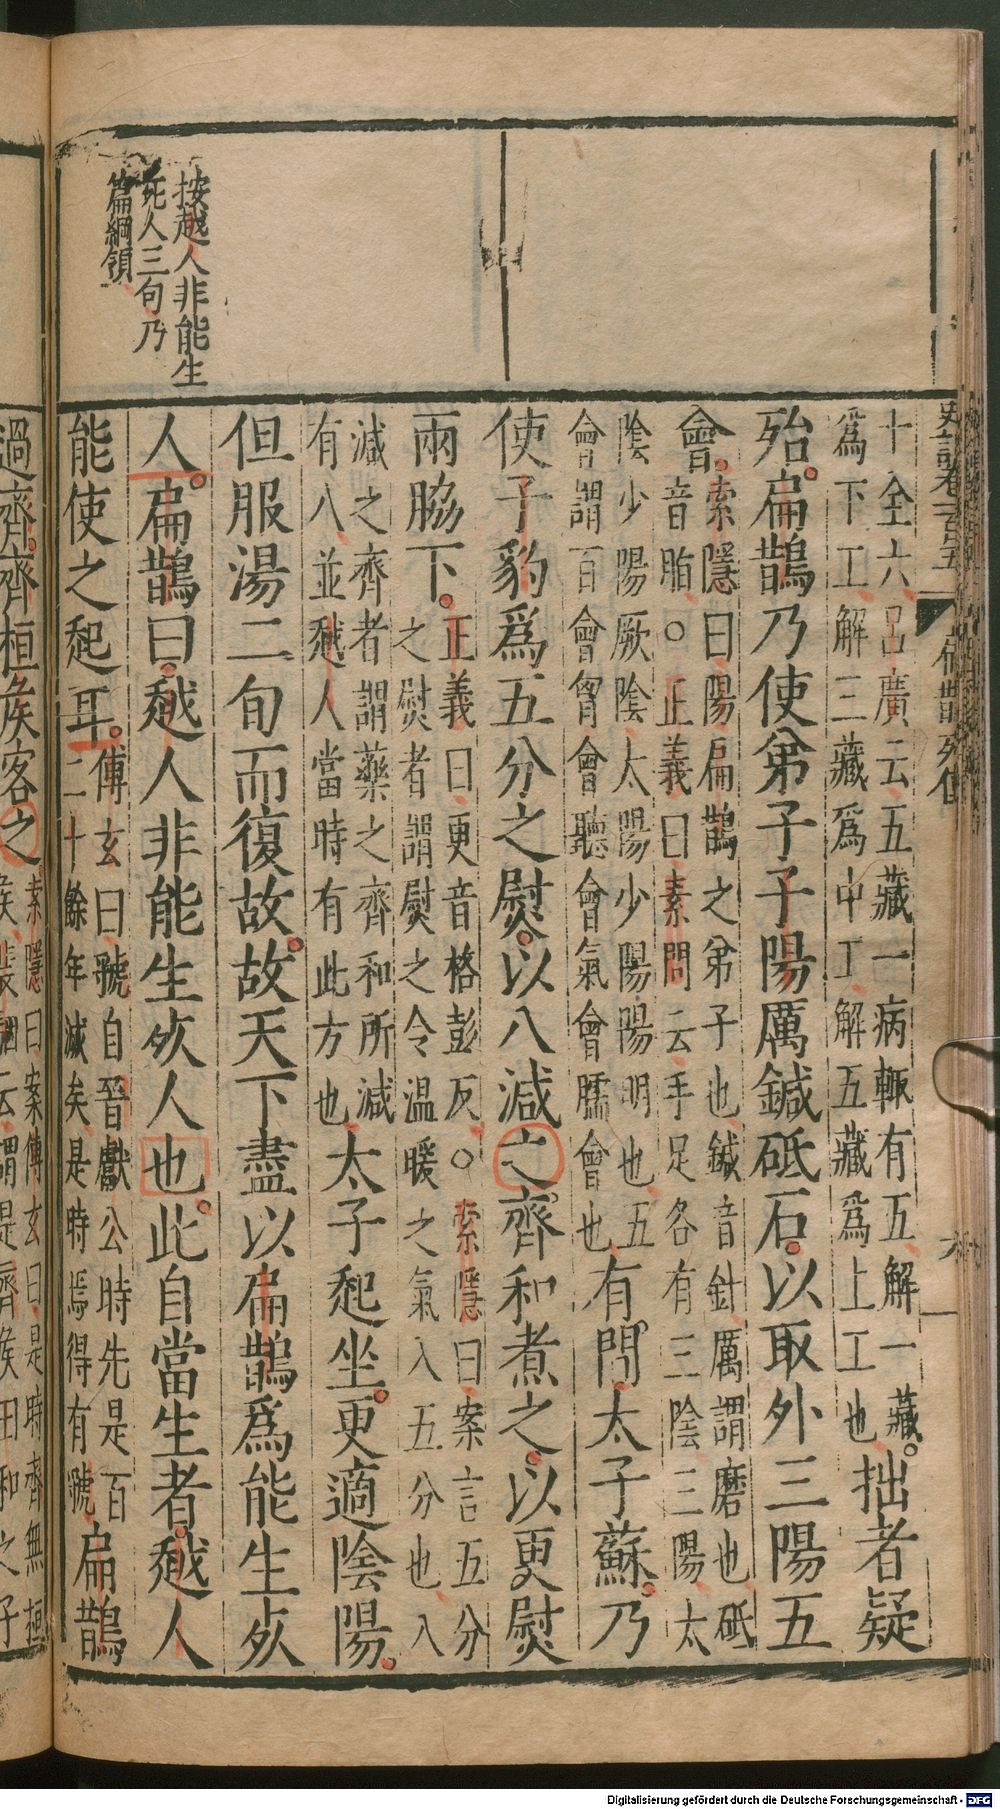 按越人非能生
死人三句乃
篇綱領
史記卷一百五
扁鵲列傳
六
十全六呂廣云五藏一病輒有五解一藏
爲下工解三藏爲中工解五藏爲上工也拙者疑
殆扁鵲乃使弟子子陽厲鍼砥石以取外三陽五
會索隱曰陽扁鵲之弟子也鍼音針厲謂磨也砥
音脂○正義曰素問云手足各有三陰三陽太
陰少陽厥陰太陽少陽陽明也五
會謂百會胷會聽會氣會臑會也有間太子蘇乃
使子豹爲五分之熨以八減之齊和煮之以更熨
兩脇下正義曰更音格彭反○索隱曰案言五分
之熨者謂熨之令溫暖之氣入五分也八
減之齊者謂藥之齊和所減
有八並越人當時有此方也太子起坐更適陰陽
但服湯二旬而復故故天下盡以扁鵲爲能生死
人扁鵲曰越人非能生死人也此自當生者越人
能使之起耳傅玄曰虢自晉獻公時先是百
二十餘年滅矣是時焉得有虢扁鵲
過齊齊桓矦客之索隱曰案傅玄曰是時齊無桓
矦裴駰云謂是齊矦田和之子
Digitalisierung gefördert durch die Deutsche Forschungsgemeinschaft - DFG